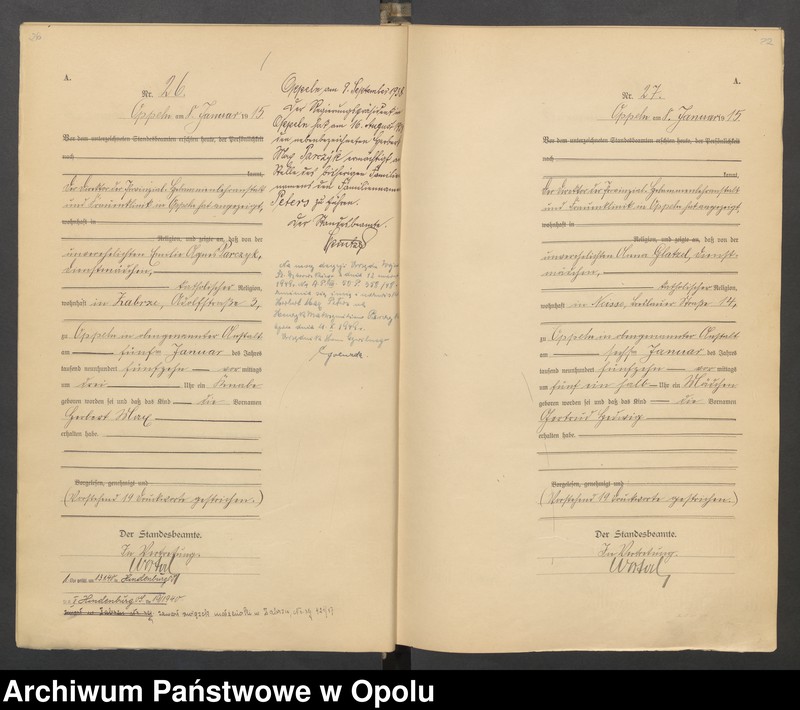 26
A.
Nr. 26.
Oppeln am 8. Januar 1915.
Vor dem unterzeichneten Standesbeamten erschien heute, der Persönlichkeit
nach
kannt,
Der Direktor der Provinzial-Hebammenlehranstalt
und Frauenklinik in Oppeln hat angezeigt,
wohnhaft in
Religion, und zeigte an, daß von der
unverehelichten Emilie Agnes Parczyk,
Dienstmädchen,
katholischer Religion,
wohnhaft in Zabrze, Adolfstraße 3,
zu Oppeln in obengenannter Anstalt
am fünften Januar des Jahres
tausend neunhundert fünfzehn vormittags
um drei Uhr ein Knabe
geboren worden sei und daß das Kind die Vornamen
Herbert Max
erhalten habe.
Vorgelesen, genehmigt und
(Vorstehend 19 Druckworte gestrichen.)
Der Standesbeamte.
In Vertretung.
Wostal
Hindenburg
Hindenburg 1940
zawarł związek małżeński w Zabrzu
Oppeln, am 9. September
Der Regierungspräsident in
Oppeln hat am 16. August
den nebenbezeichneten Herbert
Max Parczyk ermächtigt, an
Stelle des bisherigen Familien-
namens den Familiennamen
Peters zu führen.
Der Standesbeamte.
Na mocy decyzji
Herbert Max Peters
A.
Nr. 27.
Oppeln am 8. Januar 1915.
Vor dem unterzeichneten Standesbeamten erschien heute, der Persönlichkeit
nach
kannt,
Der Direktor der Provinzial-Hebammenlehranstalt
und Frauenklinik in Oppeln hat angezeigt,
wohnhaft in
Religion, und zeigte an, daß von der
unverehelichten Anna Glatzel, Dienst-
mädchen,
katholischer Religion,
wohnhaft in Neisse, Straße 14,
zu Oppeln in obengenannter Anstalt
am sechsten Januar des Jahres
tausend neunhundert fünfzehn vormittags
um fünf ein halb Uhr ein Mädchen
geboren worden sei und daß das Kind die Vornamen
Gertrud Hedwig
erhalten habe.
Vorgelesen, genehmigt und
(Vorstehend 19 Druckworte gestrichen.)
Der Standesbeamte.
In Vertretung.
Wostal
Archiwum Państwowe w Opolu